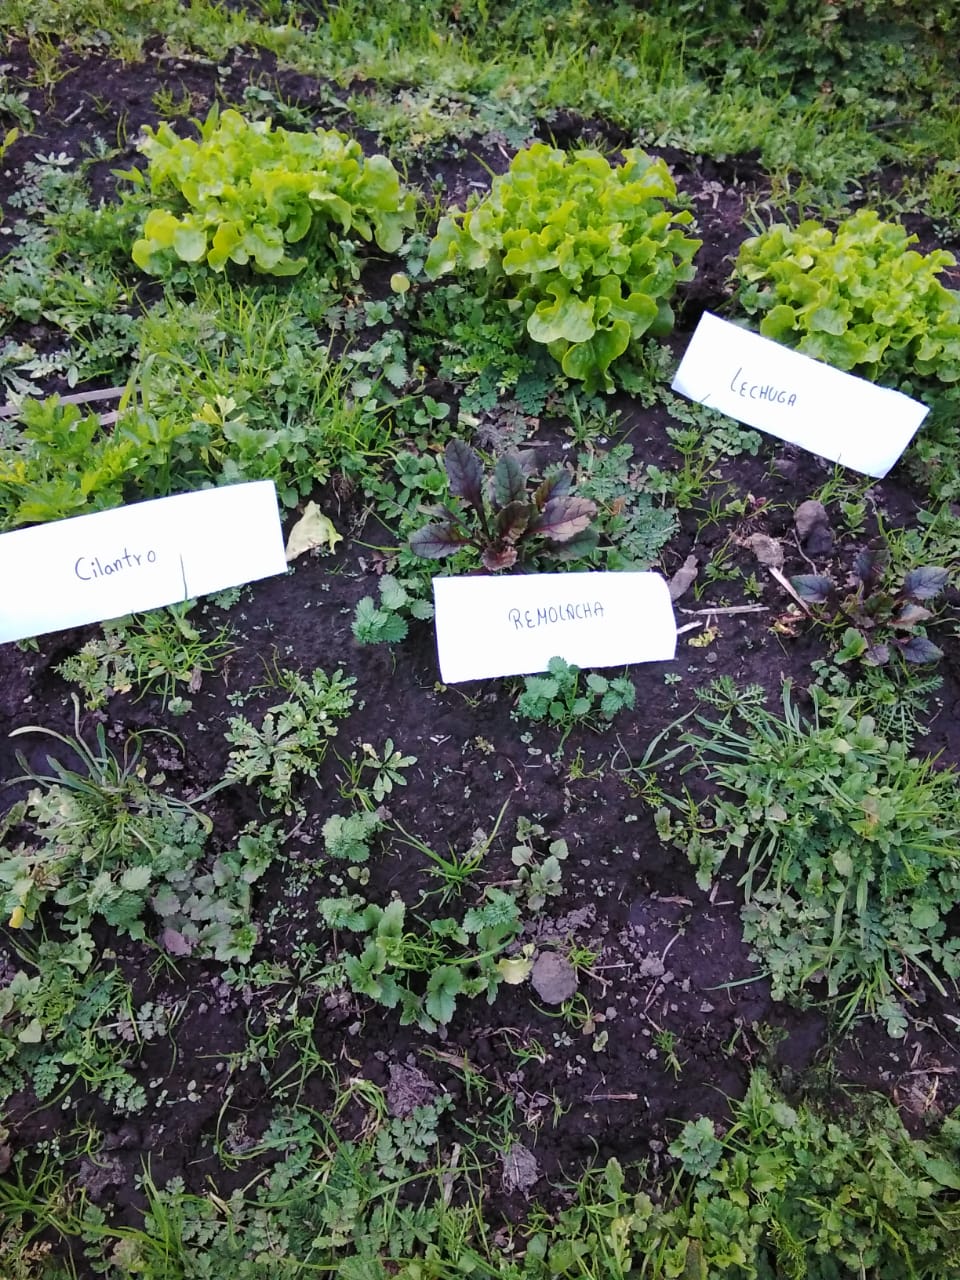 LECHUGA
Cilantro
REMOLACHA